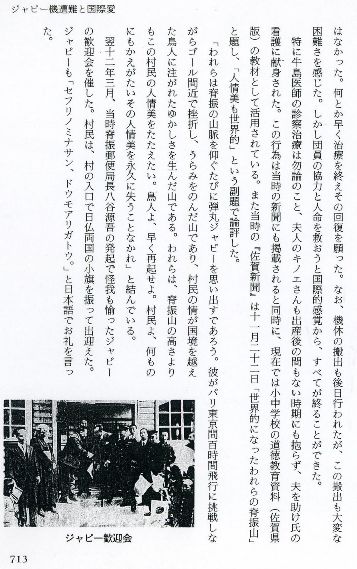 ジャピー機遭難と国際愛
はなかった。何とか早く治療を終えその回復を願った。なお、機体の搬出も後日行われたが、この搬出も大変な
困難さを感じた。しかし団員の協力と人命を救おうと国際的感覚から、すべてが終ることができた。
特に牛島医師の診察治療は勿論のこと、夫人のキノエさんも出産後の間もない時期にも抱らず、夫を助け氏の
看護に献身された。この行為は当時の新聞にも掲載されると同時に、現在では小中学校の道徳教育資料（佐賀県
版）の教材として活用されている。また当時の『佐賀新聞』は十一月二十二日「世界的になったわれらの脊振山」
と題し、「人情美も世界的」という副題で論評した。
「われらは脊振の山脈を仰ぐたびに弾丸ジャピーを思い出すであろう。彼がパリ東京間百時間飛行に挑戦しな
がらゴール間近で挫折し、うらみをのんだ山であり、村民の情が国境を越え
た鳥人に注がれたゆかしさを生んだ山である。われらは、脊振山の高さより
もこの村民の人情美をたたえたい。鳥人よ、早く再起せよ。村民よ、何もの
にもかえがたいその人情美を永久に失うことなかれ」と結んでいる。
翌十二年三月、当時脊振郵便局長八谷源吾の発起で怪我も愈ったジャピー
の歓迎会を催した。村民は、村の入口で日仏両国の小旗を振って出迎えた。
ジャピーも「セフリノミナサン ドウモアリガトウ。」と日本語でお礼を言っ
た。
ジャピー歓迎会
713